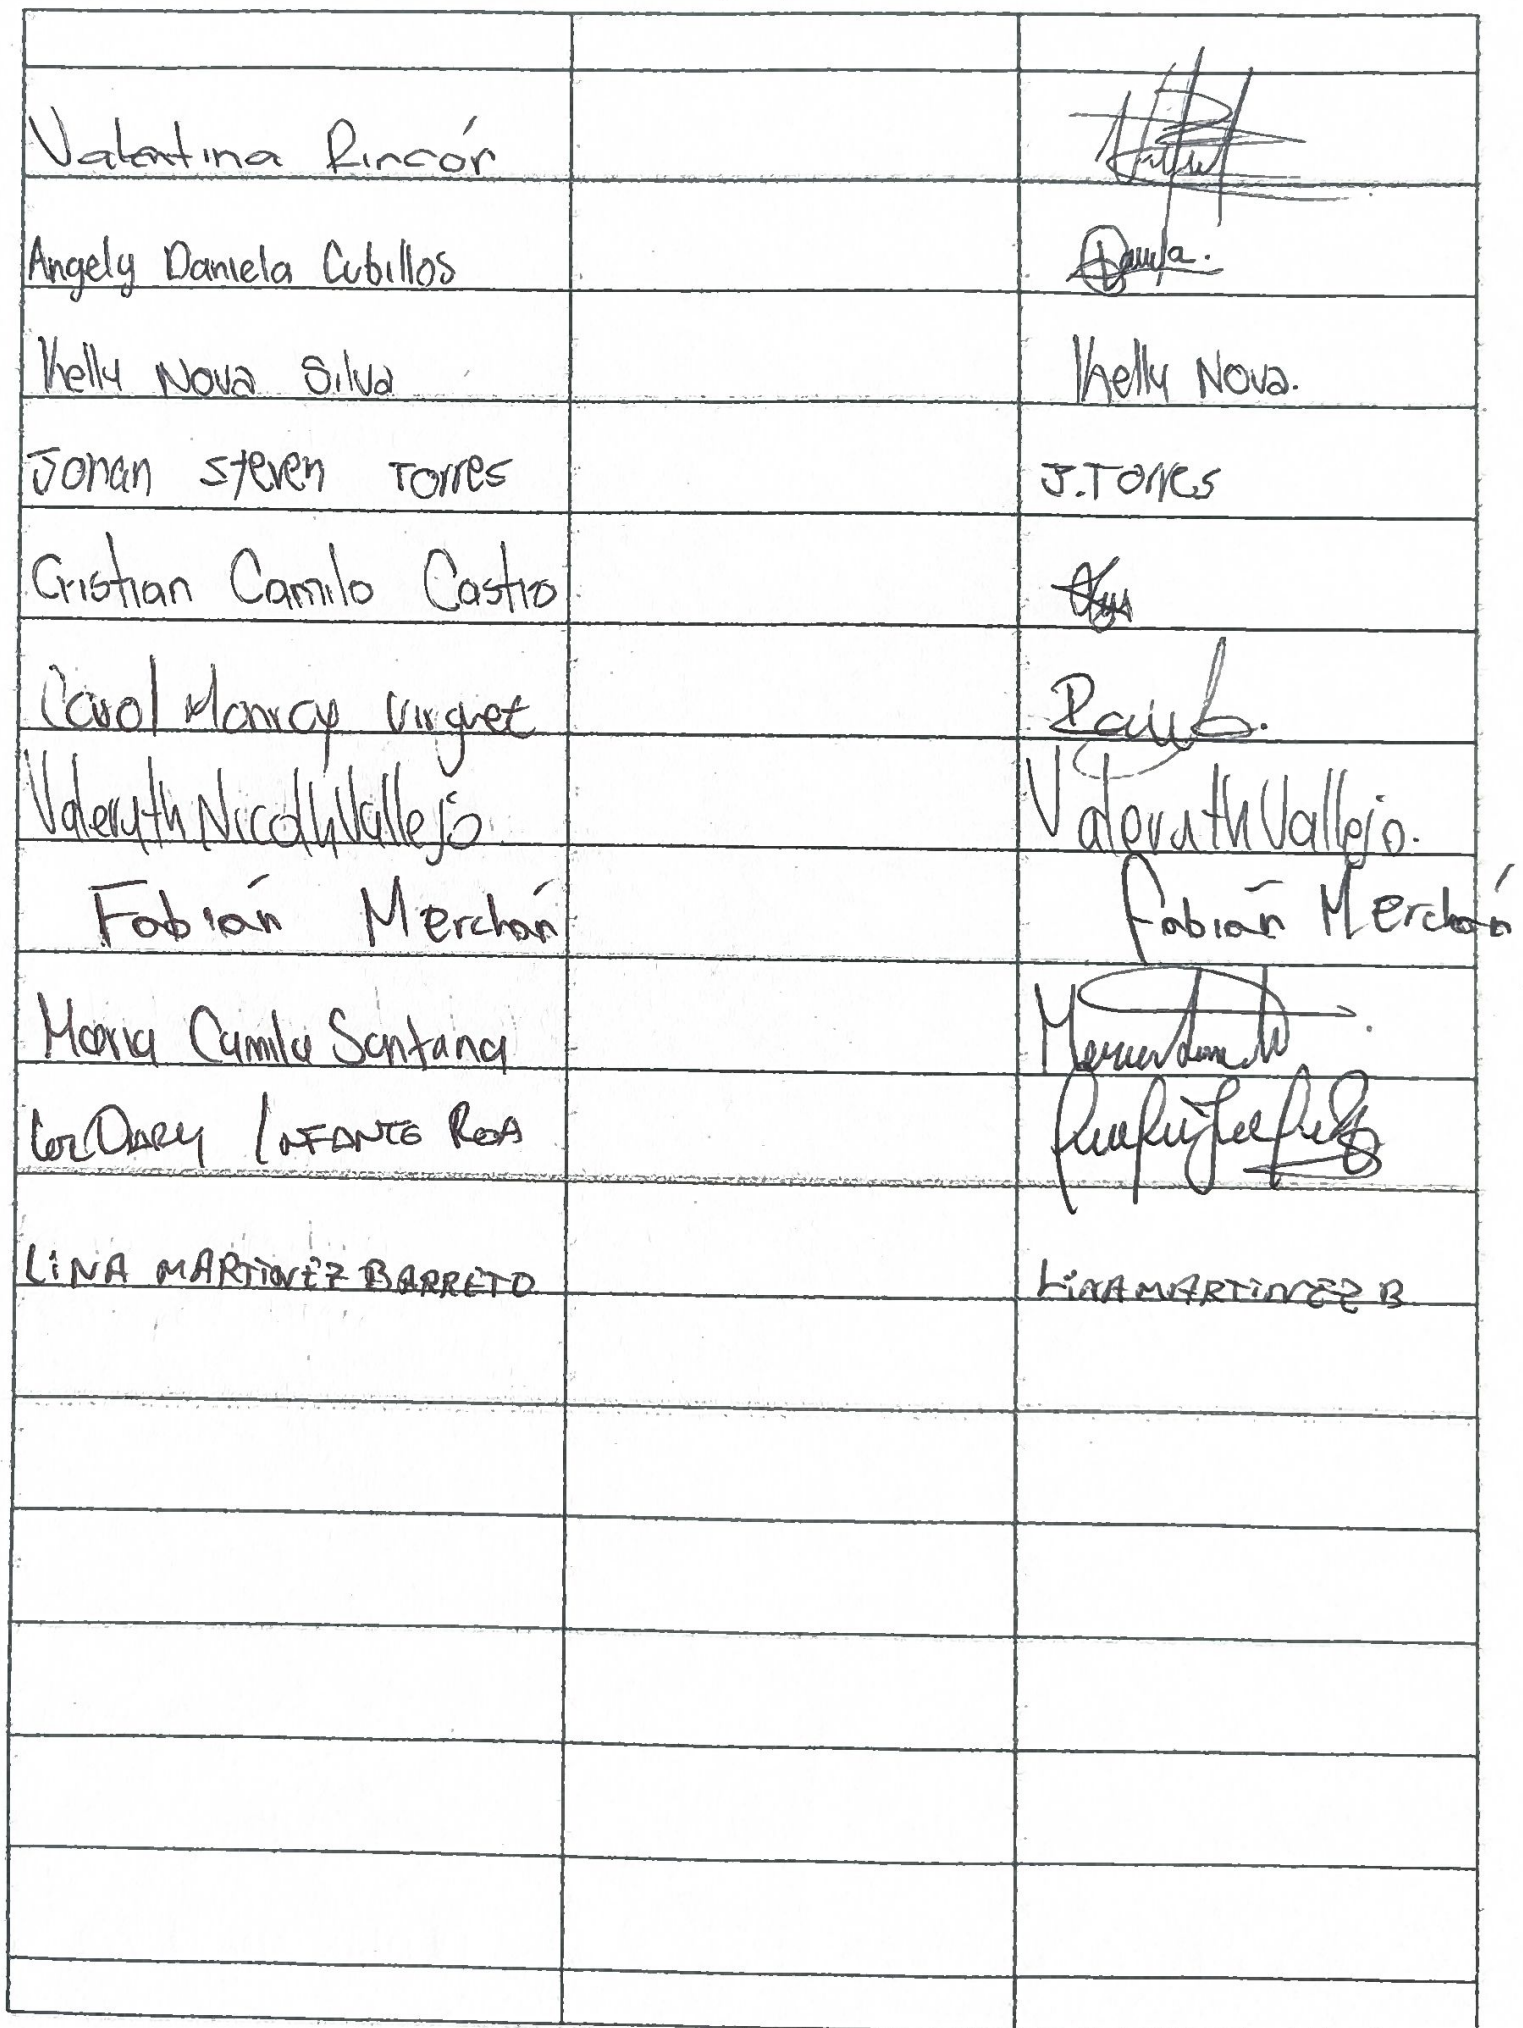 Valentina Rincón
Angely Daniela Cubillos
Kelly Nova Silva Kelly Nova.
Jonan Steven Torres J. Torres
Cristian Camilo Castro
Carol Monroy Virguez
Valeryth Nicoll Vallejo Valeryth Vallejo.
Fabián Merchán Fabián Merchán
Maria Camila Santana
Luz Dary Infante Roa
LINA MARTINEZ BARRETO LINA MARTINEZ B